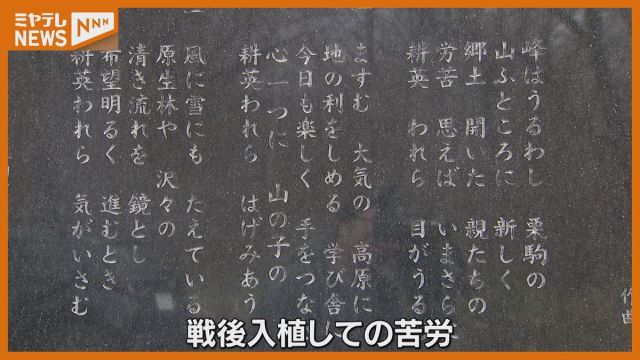 ミヤテレ
NEWS NNN
峰はうるわし 栗駒の
山ふところに 新しく
郷土 開いた 親たちの
労苦 思えば いまさら
耕英 われら 目がうる
ますむ 大気の 高原に
地の利をしめる 学び舎
今日も楽しく 手をつな
心一つに 山の子の
耕英われら はげみあう
風に雪にも たえている
原生林や 沢々の
清き流れを 鏡とし
希望明るく 進むとき
耕英われら 気がいさむ
作曲
戦後入植しての苦労